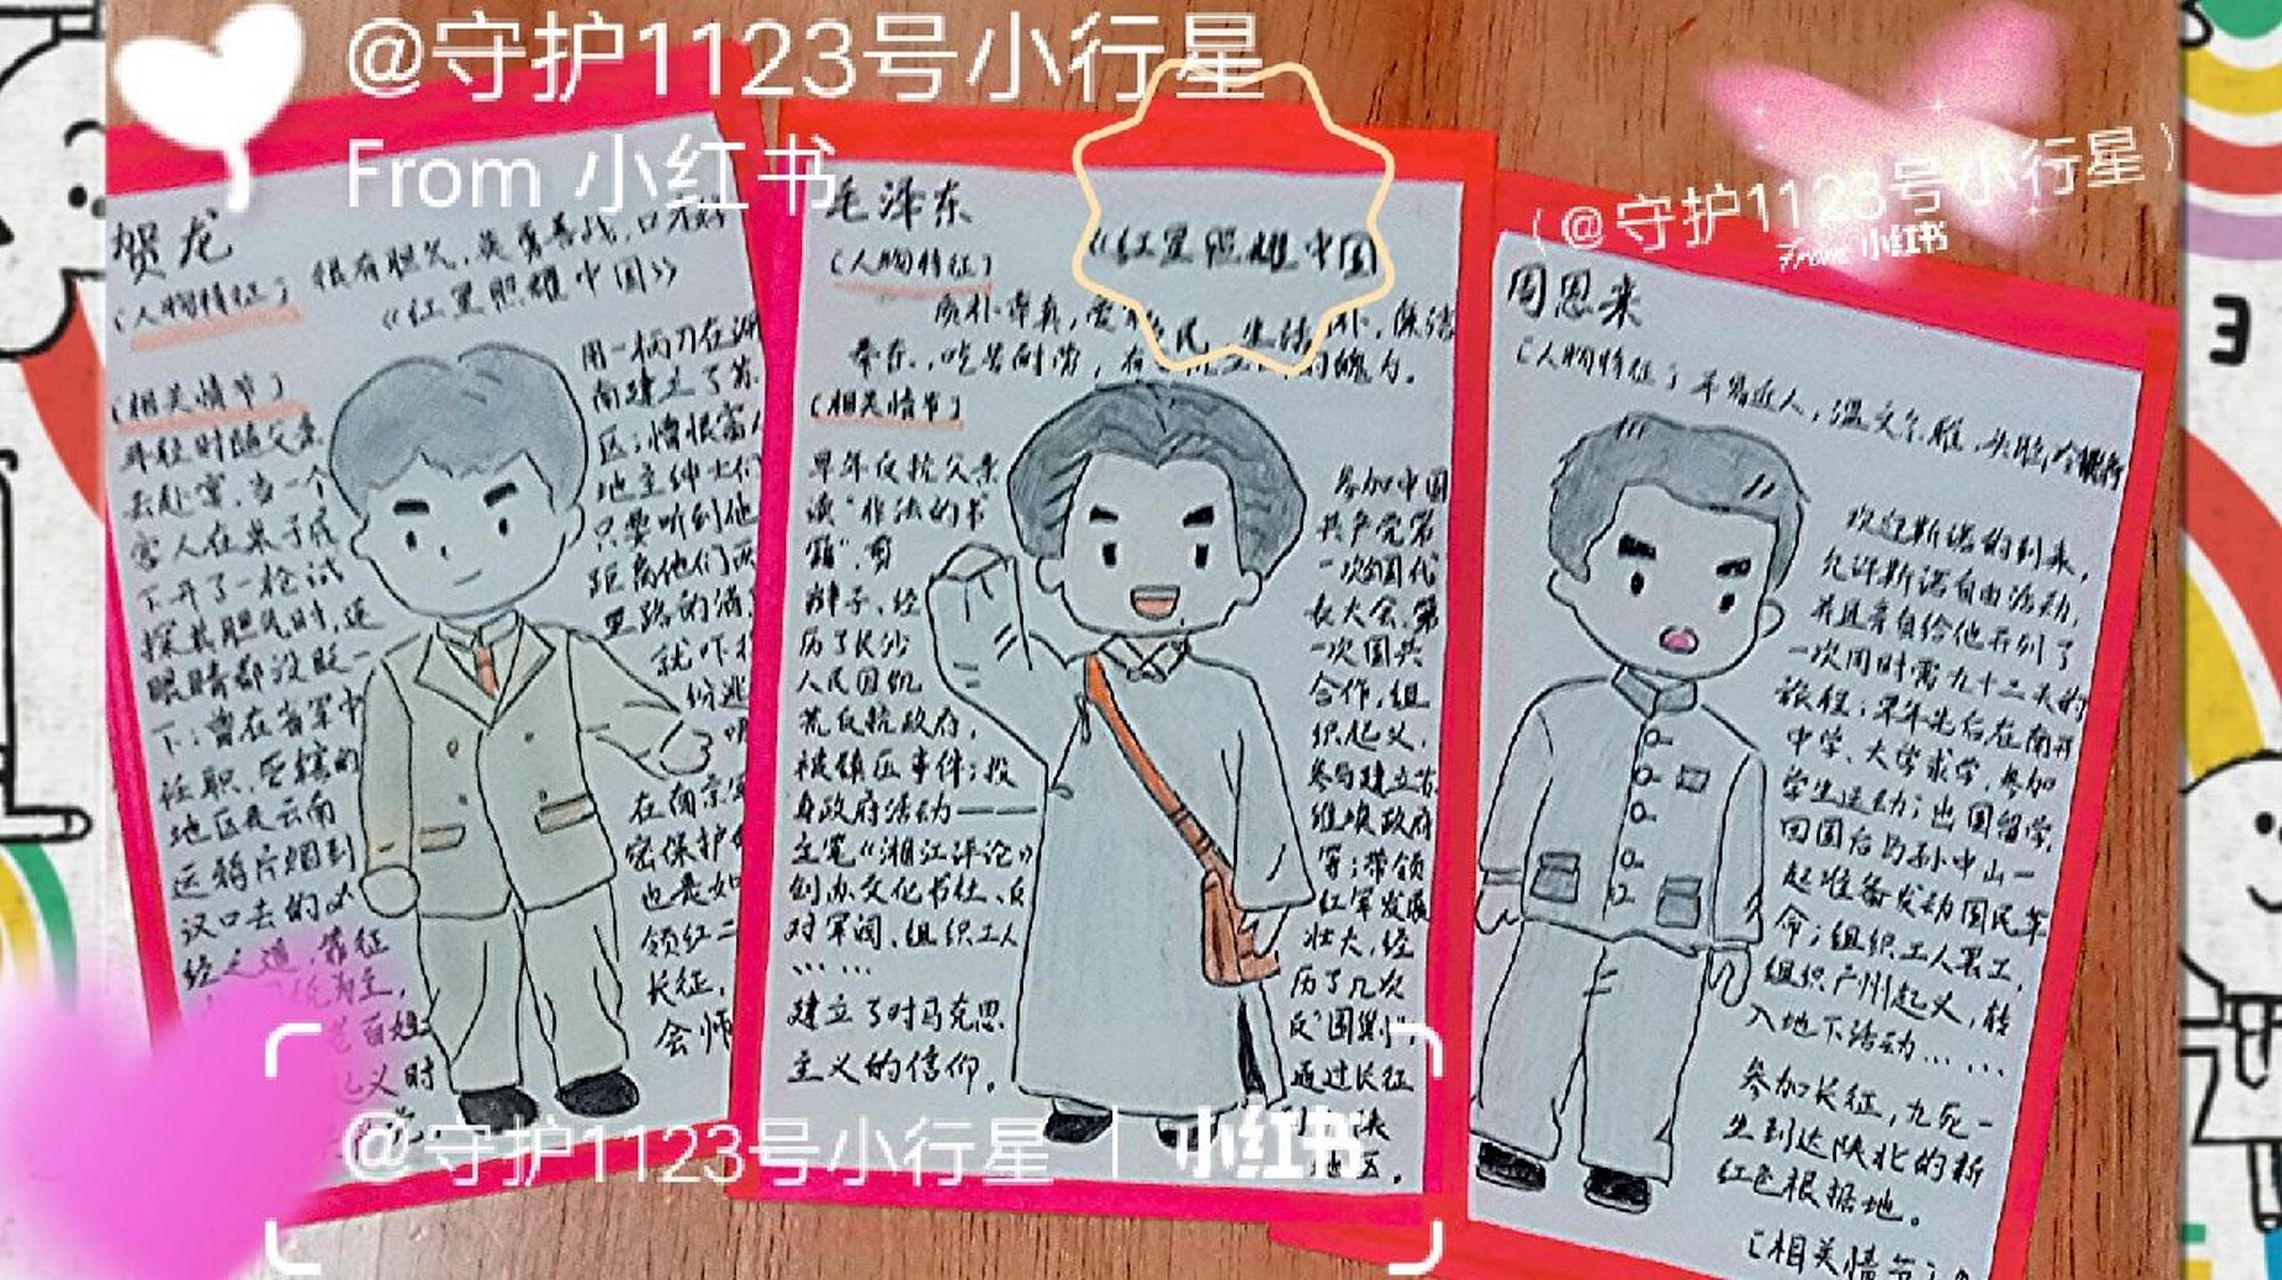 @守护1123号小行星
From 小红书
(@守护1123号小行星)
From 小红书
贺龙
(人物特征) 很有胆气,英勇善战,口才好
《红星照耀中国》
(相关情节)
年轻时随父亲
去赴宴,当一个
客人在桌子底
下开了一枪试
探其胆气时,连
眼睛都没眨一
下;曾在省军中
任职,管辖的
地区是云南
运鸦片烟到
汉口去的必
经之道,靠征
为主,
老百姓
义时
用一柄刀在湖
南建立了苏
区;憎恨富人
地主绅士们
只要听到他
距离他们两
里路的消
就吓
纷逃
在南京
密保护
也是如
领红二
长征,
会师
毛泽东
《红星照耀中国
(人物特征)
质朴率真,爱 民 生活 朴,廉洁
奉公,吃苦耐劳,有 的魄力。
(相关情节)
早年反抗父亲
读"非法的书
籍",剪
辫子,经
历了长沙
人民因饥
荒反抗政府,
被镇压事件;投
身政府活动——
主笔《湘江评论》
创办文化书社、反
对军阀,组织工人
……
建立了对马克思
主义的信仰。
参加中国
共产党第
一次全国代
表大会、第
一次国共
合作,组
织起义,
参与建立苏
维埃政府
等;带领
红军发展
壮大,经
历了几次
反"围剿";
通过长征
陕
地区。
周恩来
(人物特征) 平易近人,温文尔雅,头脑冷静
欢迎斯诺的到来,
允许斯诺自由活动,
并且亲自给他开列了
一次用时需九十二天的
旅程;早年先后在南开
中学、大学求学,参加
学生运动;出国留学,
回国后与孙中山一
起准备发动国民革
命;组织工人罢工,
组织广州起义,转
入地下活动……
参加长征,九死一
生到达陕北的新
红色根据地。
(相关情节)
@守护1123号小行星 | 小红书
3